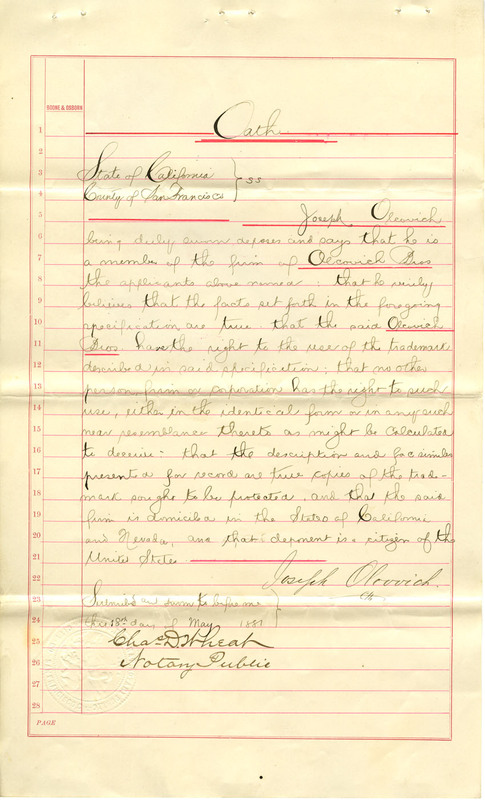 BOONE & OSBORN
1
Oath
2
3
State of California
} SS
4
County of San Francisco
5
Joseph Olcovich
6
being duly sworn deposes and says that he is
7
a member of the firm of Olcovich Bros
8
the applicants above named; that he verily
9
believes that the facts set forth in the foregoing
10
specification are true; that the said Olcovich
11
Bros. have the right to the use of the trademark
12
described in said specification; that no other
13
person, firm or corporation has the right to such
14
use, either in the identical form or in any such
15
near resemblance thereto as might be calculated
16
to deceive; that the description and facsimiles
17
presented for record are true copies of the trade-
18
mark sought to be protected, and that the said
19
firm is domiciled in the States of California
20
and Nevada, and that deponent is a citizen of the
21
United States
22
Joseph Olcovich
23
Subscribed and sworn to before me
24
this 18th day of May 1881
25
Chas. D. Wheat
26
Notary Public
27
28
PAGE